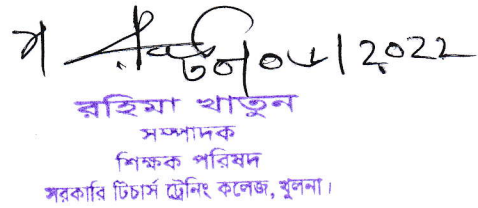 ২০২২
রহিমা খাতুন
সম্পাদক
শিক্ষক পরিষদ
সরকারি টিচার্স ট্রেনিং কলেজ, খুলনা।